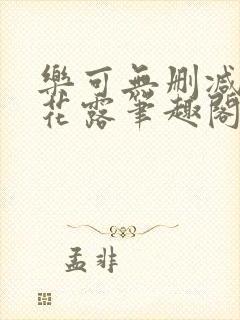 樂可無删减
花露筆趣閣
孟非